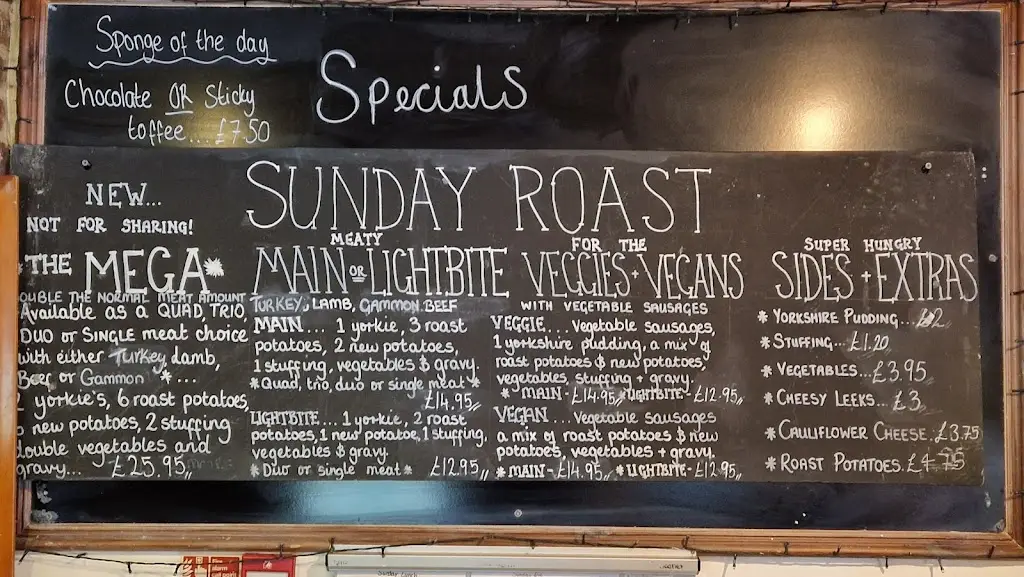 Sponge of the day
Chocolate OR Sticky
toffee... £7.50
Specials
SUNDAY ROAST
NEW...
NOT FOR SHARING!
*THE MEGA*
OUBLE THE NORMAL MEAT AMOUNT
Available as a QUAD, TRIO,
DUO or SINGLE meat choice
with either Turkey, Lamb,
Beef or Gammon *...
yorkie's, 6 roast potatoes,
new potatoes, 2 stuffing
double vegetables and
gravy... £25.95,,
MEATY
MAIN OR LIGHTBITE
TURKEY, LAMB, GAMMON, BEEF
MAIN... 1 yorkie, 3 roast
potatoes, 2 new potatoes,
1 stuffing, vegetables & gravy.
*Quad, trio, duo or single meat*
£14.95,,
LIGHTBITE... 1 yorkie, 2 roast
potatoes, 1 new potatoe, 1 stuffing,
vegetables & gravy.
*Duo or single meat* £12.95,,
FOR THE
VEGGIES + VEGANS
WITH VEGETABLE SAUSAGES
VEGGIE... Vegetable sausages,
1 yorkshire pudding, a mix of
roast potatoes & new potatoes,
vegetables, stuffing + gravy.
*MAIN - £14.95,, *LIGHTBITE - £12.95,,
VEGAN... Vegetable sausages
a mix of roast potatoes & new
potatoes, vegetables + gravy.
*MAIN - £14.95,, *LIGHTBITE - £12.95,,
SUPER HUNGRY
SIDES + EXTRAS
* YORKSHIRE PUDDING... £2
* STUFFING... £1.20
* VEGETABLES... £3.95
* CHEESY LEEKS... £3
* CAULIFLOWER CHEESE. £3.75
* ROAST POTATOES.